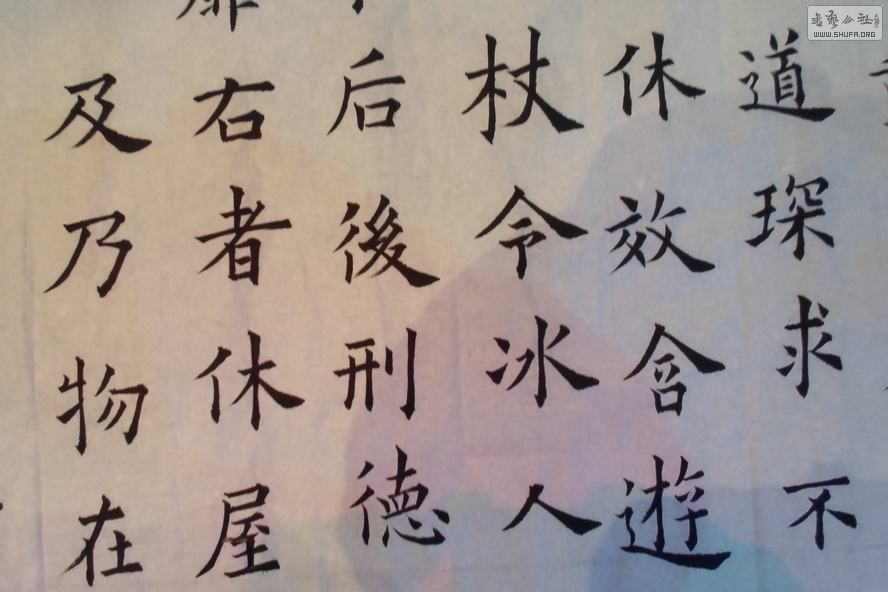 道琛求不
休效含遊
杖令冰人
后後刑德
右者休屋
及乃物在
書藝公社
WWW.SHUFA.ORG